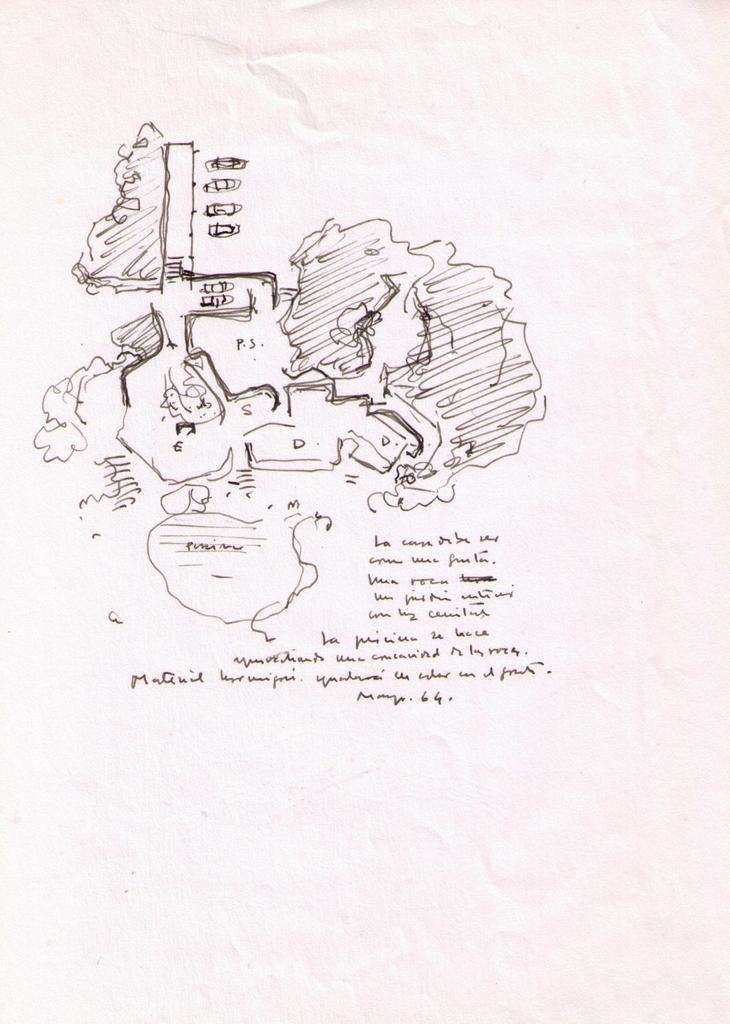 P.S.
S
E
D.
D.
piscina
La casa debe ser
como una gruta.
Una roca
un jardín interior
con luz cenital
La piscina se hace
aprovechando una concavidad de las rocas.
Material hormigón. igualará en color en el
Mayo. 64.